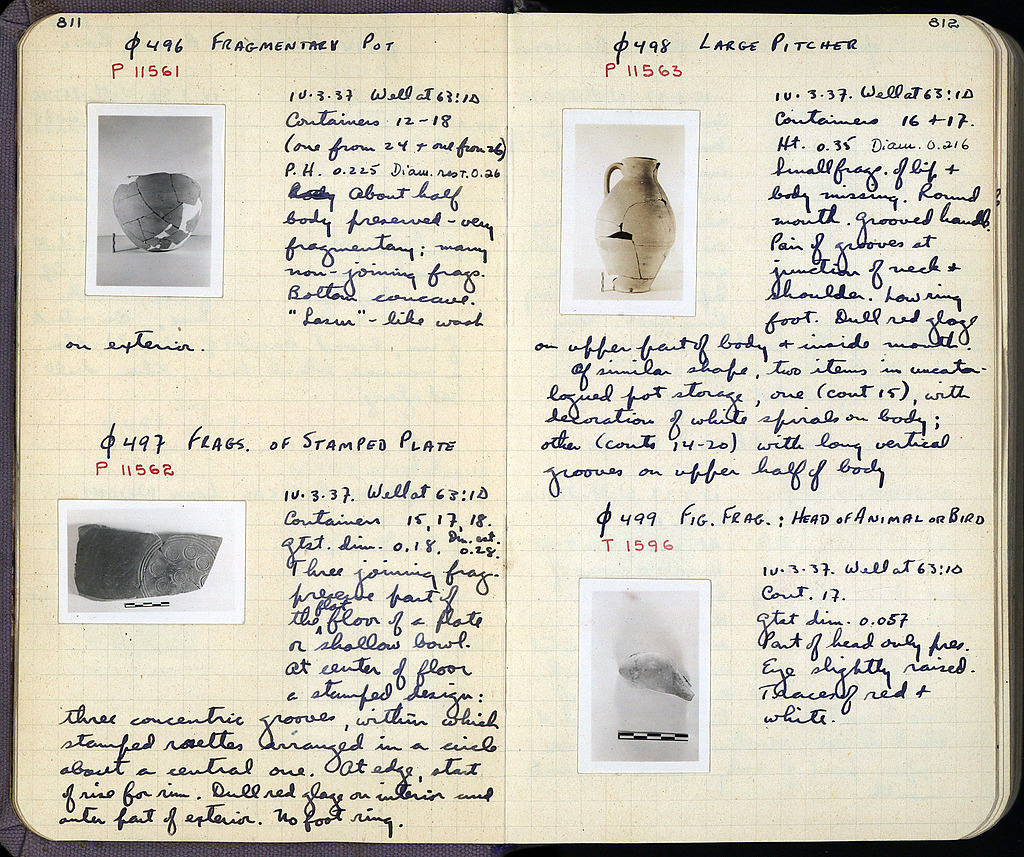 811
φ496 FRAGMENTARY POT
P 11561
IV.3.37 Well at 63:ΙΔ
Containers 12-18
(one from 24 + one from 26)
P.H. 0.225 Diam. rest. 0.26
Body About half
body preserved - very
fragmentary; many
non-joining frags.
Bottom concave.
"Lasur"-like wash
on exterior.
φ497 FRAGS. OF STAMPED PLATE
P 11562
IV.3.37. Well at 63:ΙΔ
Containers 15, 17, 18.
Gtst. dim. 0.18. Dim. est. 0.28.
Three joining frag.
preserve part of
the flat floor of a plate
or shallow bowl.
At center of floor
a stamped design:
three concentric grooves, within which
stamped rosettes arranged in a circle
about a central one. At edge, start
of rise for rim. Dull red glaze on interior and
outer part of exterior. No foot ring.
812
φ498 LARGE PITCHER
P 11563
IV.3.37. Well at 63:ΙΔ
Containers 16 + 17.
Ht. 0.35 Diam. 0.216
Small frags. of lip +
body missing. Round
mouth. Grooved handle.
Pair of grooves at
junction of neck +
shoulder. Low ring
foot. Dull red glaze
on upper part of body + inside mouth.
Of similar shape, two items in uncata-
logued pot storage, one (cont 15), with
decoration of white spirals on body;
other (conts 14-20) with long vertical
grooves on upper half of body
φ499 FIG. FRAG.: HEAD OF ANIMAL OR BIRD
T 1596
IV.3.37. Well at 63:ΙΔ
Cont. 17.
Gtst dim. 0.057
Part of head only pres.
Eye slightly raised.
Traces of red +
white.